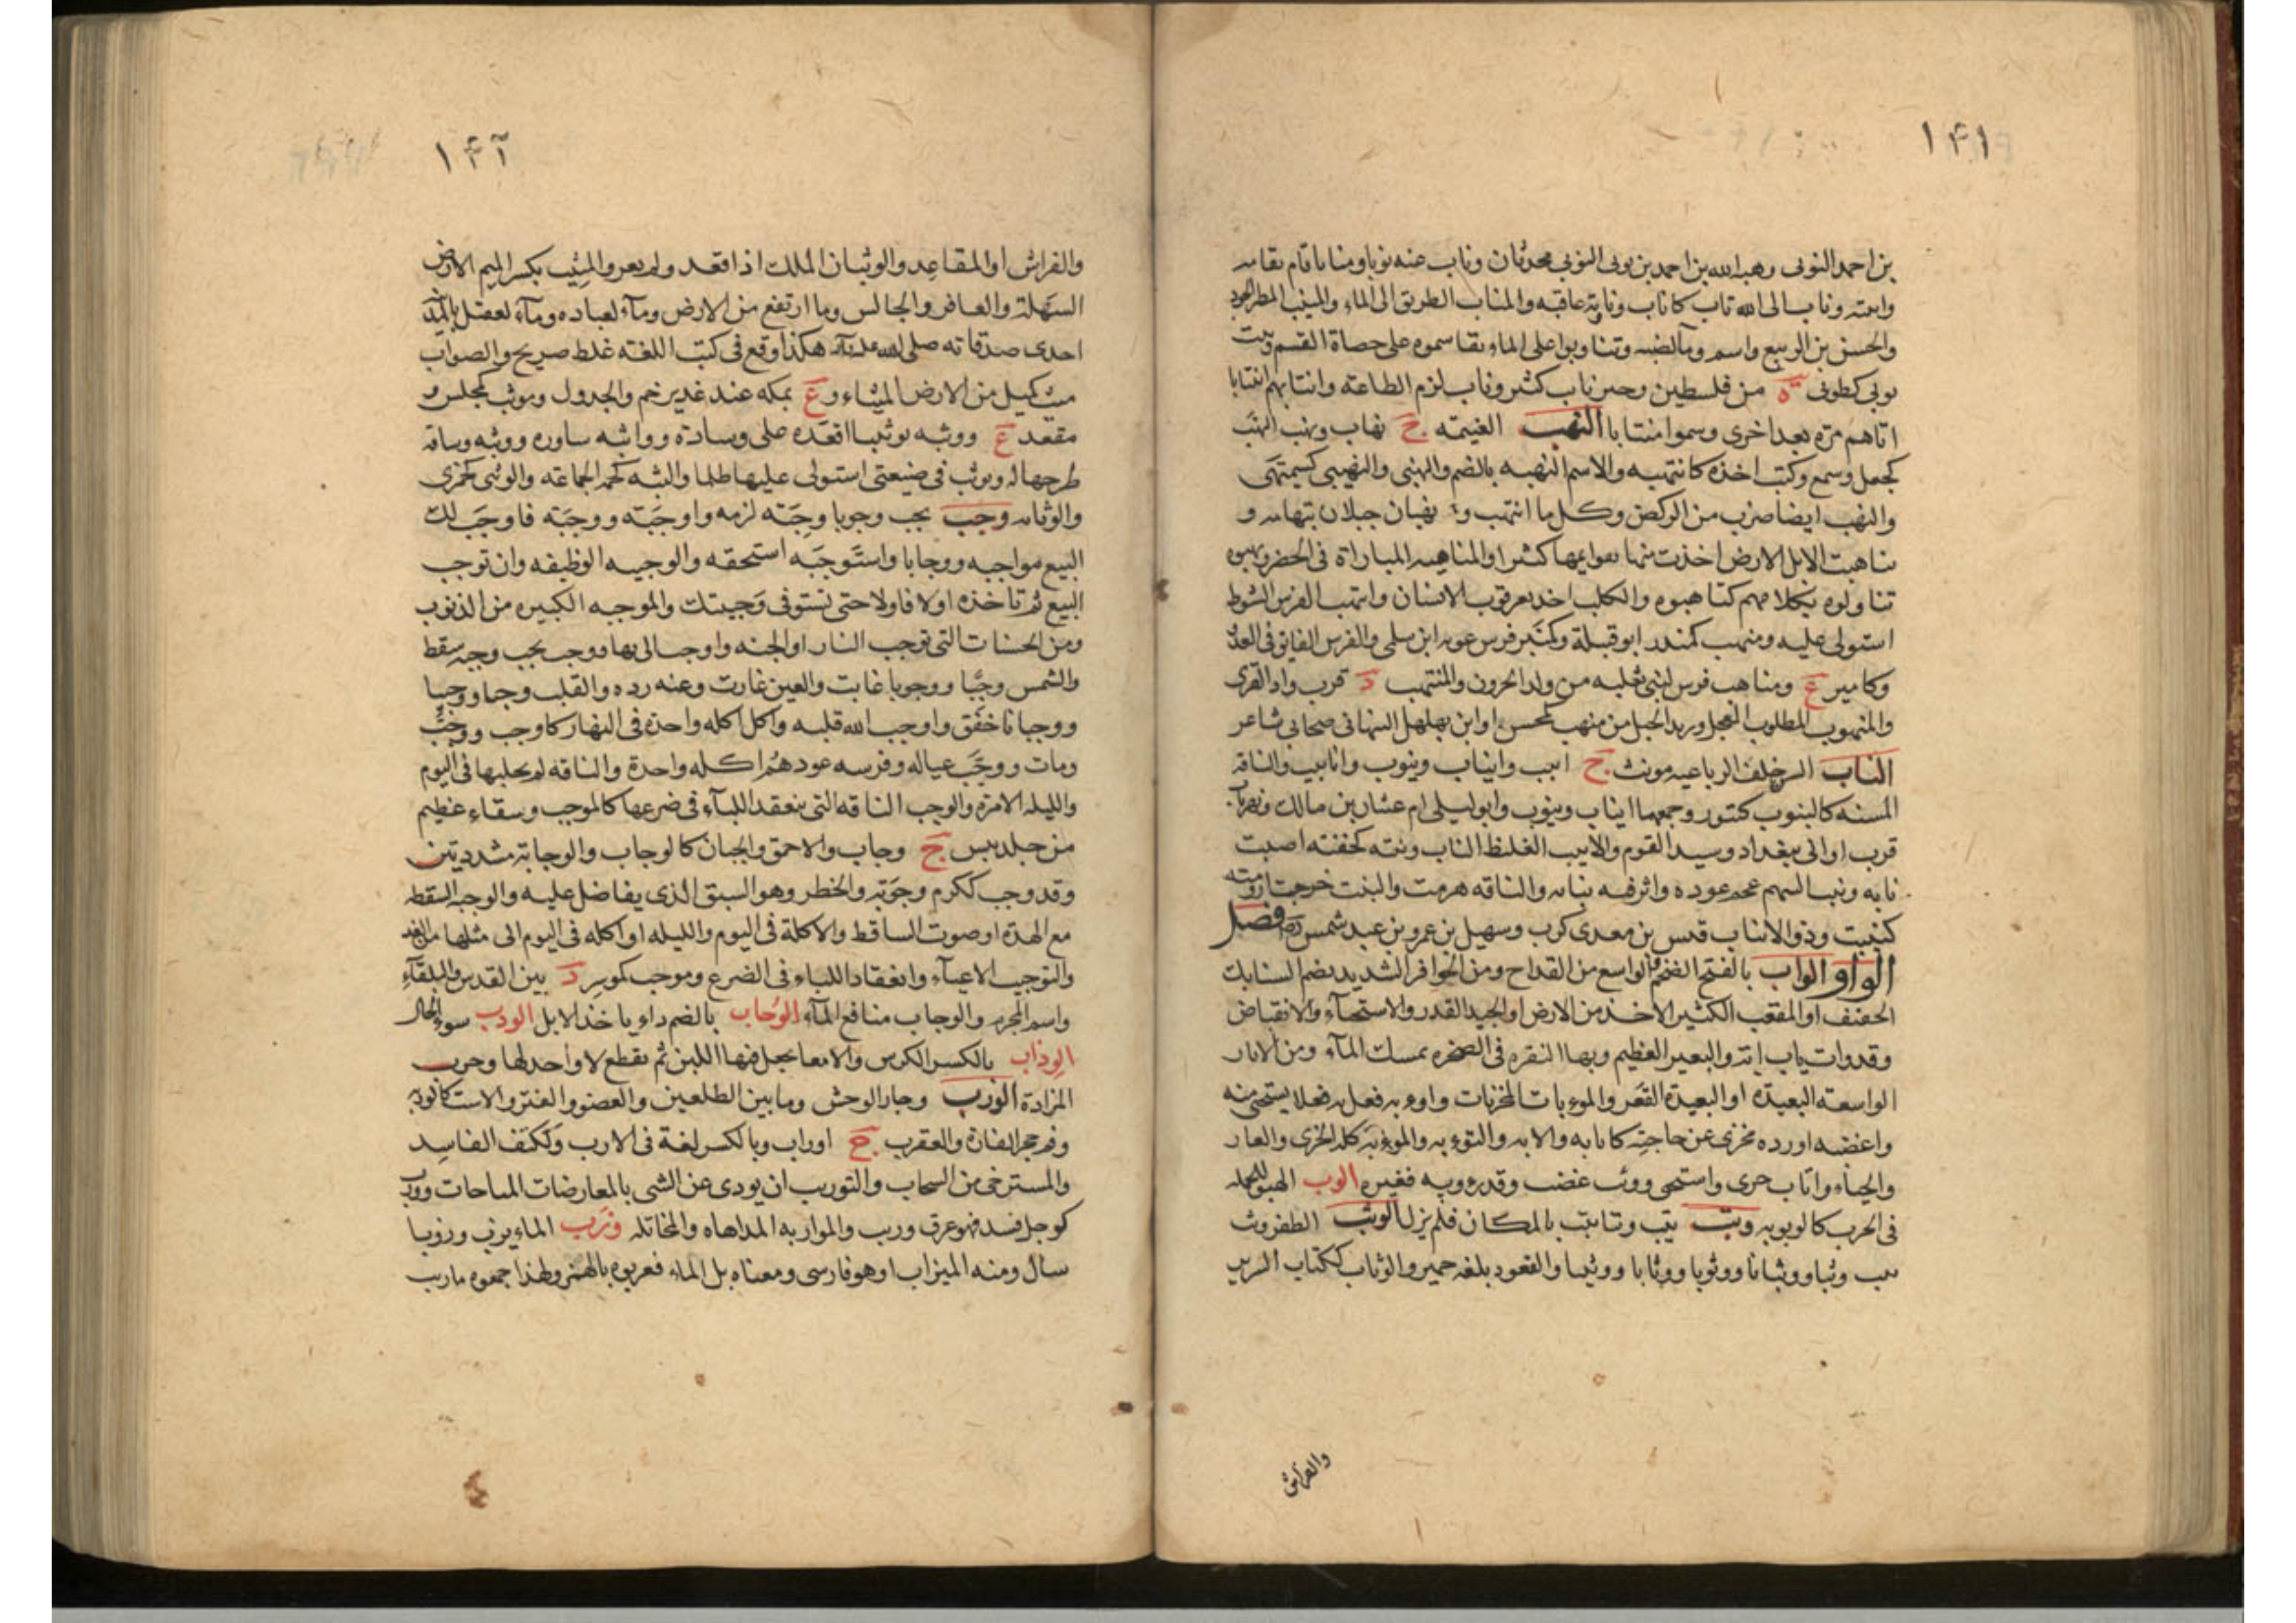 ١٤١
بن احمد النوبی وهبه الله بن احمد بن نوبی النوبی محدثان وناب عنه نوبا ومنابا قام مقامه
وانبته وناب الی الله تاب کاناب وناوبة عاقبه والمناب الطریق الی الماء والمنیب المطر الجود
والحسن من الربیع واسم وبالضم وتناوبوا علی الماء تقاسموه علی حصاة القسم وبیت
نوبی کطوبی ة من فلسطین وخیر ناب کثیر وناب لزم الطاعته وانتابهم انتیابا
اتاهم مرّة بعد اخری وسموا منتابا النهب الغنیمته ج نهاب ونهب النهب
کجعل وسمع وکتب اخذه کانتهبه والاسم النهبه بالضم والنهبی والنهیبی کسمیهی
والنهب ایضا ضرب من الرکض وکل ما انتهب و نهبان جبلان بتهامه و
تناهبت الابل الارض اخذت منها بقوایمها کثیرا والمناهبه المباراة فی الحضر ونهبوه
تناولوه بکلامهم کناهبوه والکلب اخذ بعرقوب الانسان وانتهب الفرس الشوط
استولی علیه ومنهب کمنبر ابو قبیلة وکمنبر فرس عویه ابن سلمی والفرس الفایق فی العدو
وکامیر ع ومناهب فرس لبنی ثعلبه من ولد الحرون والمنتهب د قرب واد القری
والمنهوب المطلوب المعجل وزید الخیل بن منهب کمحسن او ابن مهلهل النبهانی صحابی شاعر
الناب السن خلف الرباعیه مونث ج انیب وانیاب ونیوب واناییب والناقة
المسنه کالنیوب کتنور وجمعهما انیاب ونیوب وابو لیلی ام عتبان بن مالک ونهر ناب
قرب اوانی ببغداد وسید القوم والانیب الغلیظ الناب ونبته کخفته اصبت
نابه ونیب السهم عجم عوده واثر فیه بنابه والناقه هرمت والنبت خرجت ارومته
کتنیبت وذو الانیاب قیس بن معدی کرب وسهیل بن عمرو بن عبد شمس فصل
الواو الواب بالفتح الضخم والواسع من القداح ومن الحوافر الشدید منضم السنابک
الخفیف او المقعب الکثیر الاخذ من الارض او الجید القدر والاستحیاء والانقباض
وقد وأب یئب إبة والبعیر العظیم وبهاء النقره فی الصخره تمسک المآء ومن الابار
الواسعته البعیدة او البعیدة القعر والموءبات المخزیات واوءبه فعل به فعلا یستحیی منه
واغضبه او رده بخزی عن حاجته کاتابه والابه والتوءبه والموءبه کله الخزی والعار
والحیاء واتاب خزی واستحیی ووئب غضب وقدر وئبه قعیره الوب التهیؤ للحمله
فی الحرب کالوبوبه وتب یتب وتبا ثبت بالمکان فلم یزل الوثب الطفر وثب
یثب وثبا ووثبانا ووثوبا ووثابا ووثیبا والقعود بلغه حمیر والوثاب ککتاب السریر
والفراش
١٤٢
والفراش او المقاعد والوثبان الملک اذا قعد ولم یغز والمیثب بکسر المیم الارض
السهلة والقافز والجالس وما ارتفع من الارض ومآء لعباده ومآء لعقیل بالمدینه
احدی صدقاته صلی الله علیه وآله هکذا وقع فی کتب اللغته غلط صریح والصواب
میث کمیل من الارض المیثاء و ع بمکه عند غدیر خم والجدول وموثب کمجلس و
مقعد ع ووثبه توثیبا اقعده علی وسادة وواثبه ساوره ووثبه وسادة
طرحها له وتوثب فی ضیعتی استولی علیها ظلما والثبه کحمه الجماعته والوثبی کجمزی
والوثابه وجب یجب وجوبا وجبة لزمه واوجبه ووجبه فاوجب لک
البیع مواجبه ووجابا واستوجبه استحقه والوجیبه الوظیفه وان توجب
البیع ثم تاخذه اولا فاولا حتی تستوفی وجیبتک والموجبه الکبیره من الذنوب
ومن الحسنات التی توجب النار او الجنه واوجب اتی بها ووجب یجب وجبه سقط
والشمس وجبا ووجوبا غابت والعین غارت وعنه رده والقلب وجبا ووجیبا
ووجبانا خفق واوجب الله قلبه واکل اکله واحدة فی النهار کاوجب ووجب
ومات ووجب عیاله وفرسه عودهم اکله واحدة والناقه لم یحلبها فی الیوم
واللیله الا مرة والوجب الناقه التی ینعقد اللباء فی ضرعها کالموجب وسقاء عظیم
من جلد تیس ج وجاب والاحمق والجبان کالوجاب والوجابة مشددتین
وقد وجب ککرم وجوبة والخطر وهو السبق الذی یناضل علیه والوجبه السقطه
مع الهدة او صوت الساقط والاکلة فی الیوم واللیله او اکله فی الیوم الی مثلها من الغد
والتوجیب الاعیاء وانعقاد اللباء فی الضرع وموجب کموسر د بین القدس والبلقآء
واسم المحرم والوجاب منافع المآء الوحاب بالضم داء یاخذ الابل الودب سوء الحال
الوذاب بالکسر الکرش والامعا یجعل فیها اللبن ثم یقطع لا واحد لها وخرب
المزادة الورب وجار الوحش وما بین الضلعین والعضو والفتر والاست کالوربه
وفم جحر الفارة والعقرب ج اوراب وبالکسر لغة فی الارب وککتف الفاسد
والمسترخی من السحاب والتوریب ان یوری عن الشی بالمعارضات المباحات وورب
کوجل فسد فهو عرق ورب والمواربه المداهاه والمخاتله وزب الماء یزب وزوبا
سال ومنه المیزاب او هو فارسی ومعناه بل الماء فعربوه بالهمز ولهذا جمعوه مآزیب